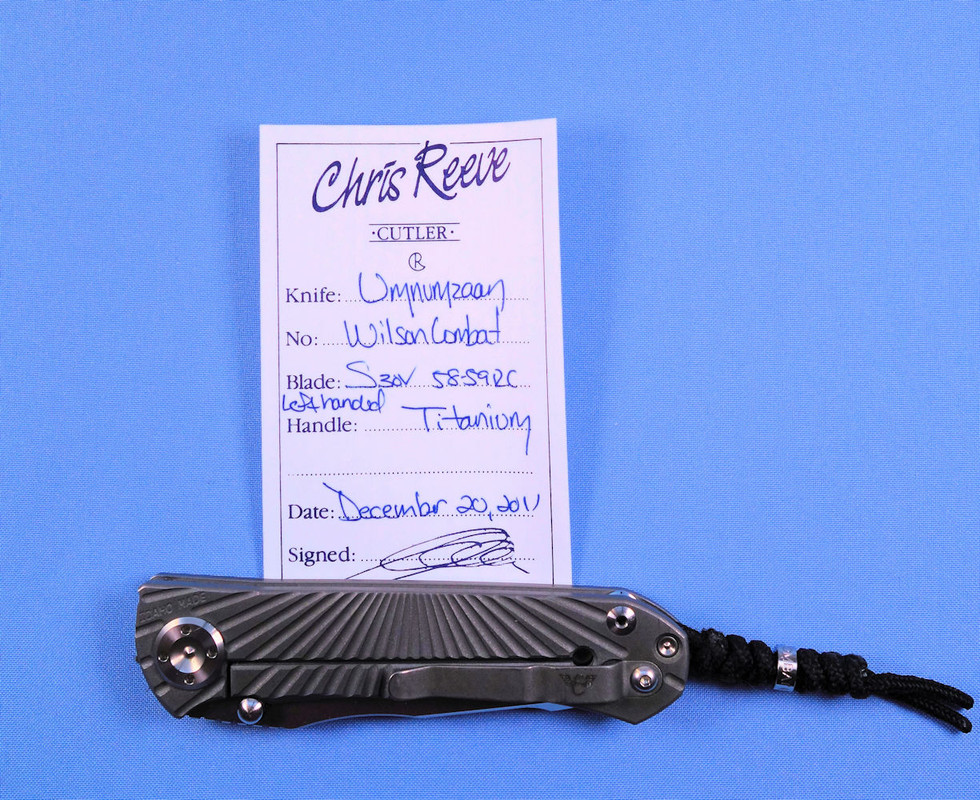 Chris Reeve
·CUTLER·
R
Knife: Umnumzaan
No: Wilson Combat
Blade: S30V 58-59RC
Left handed
Handle: Titanium
Date: December 20, 2011
Signed:
IDAHO MADE